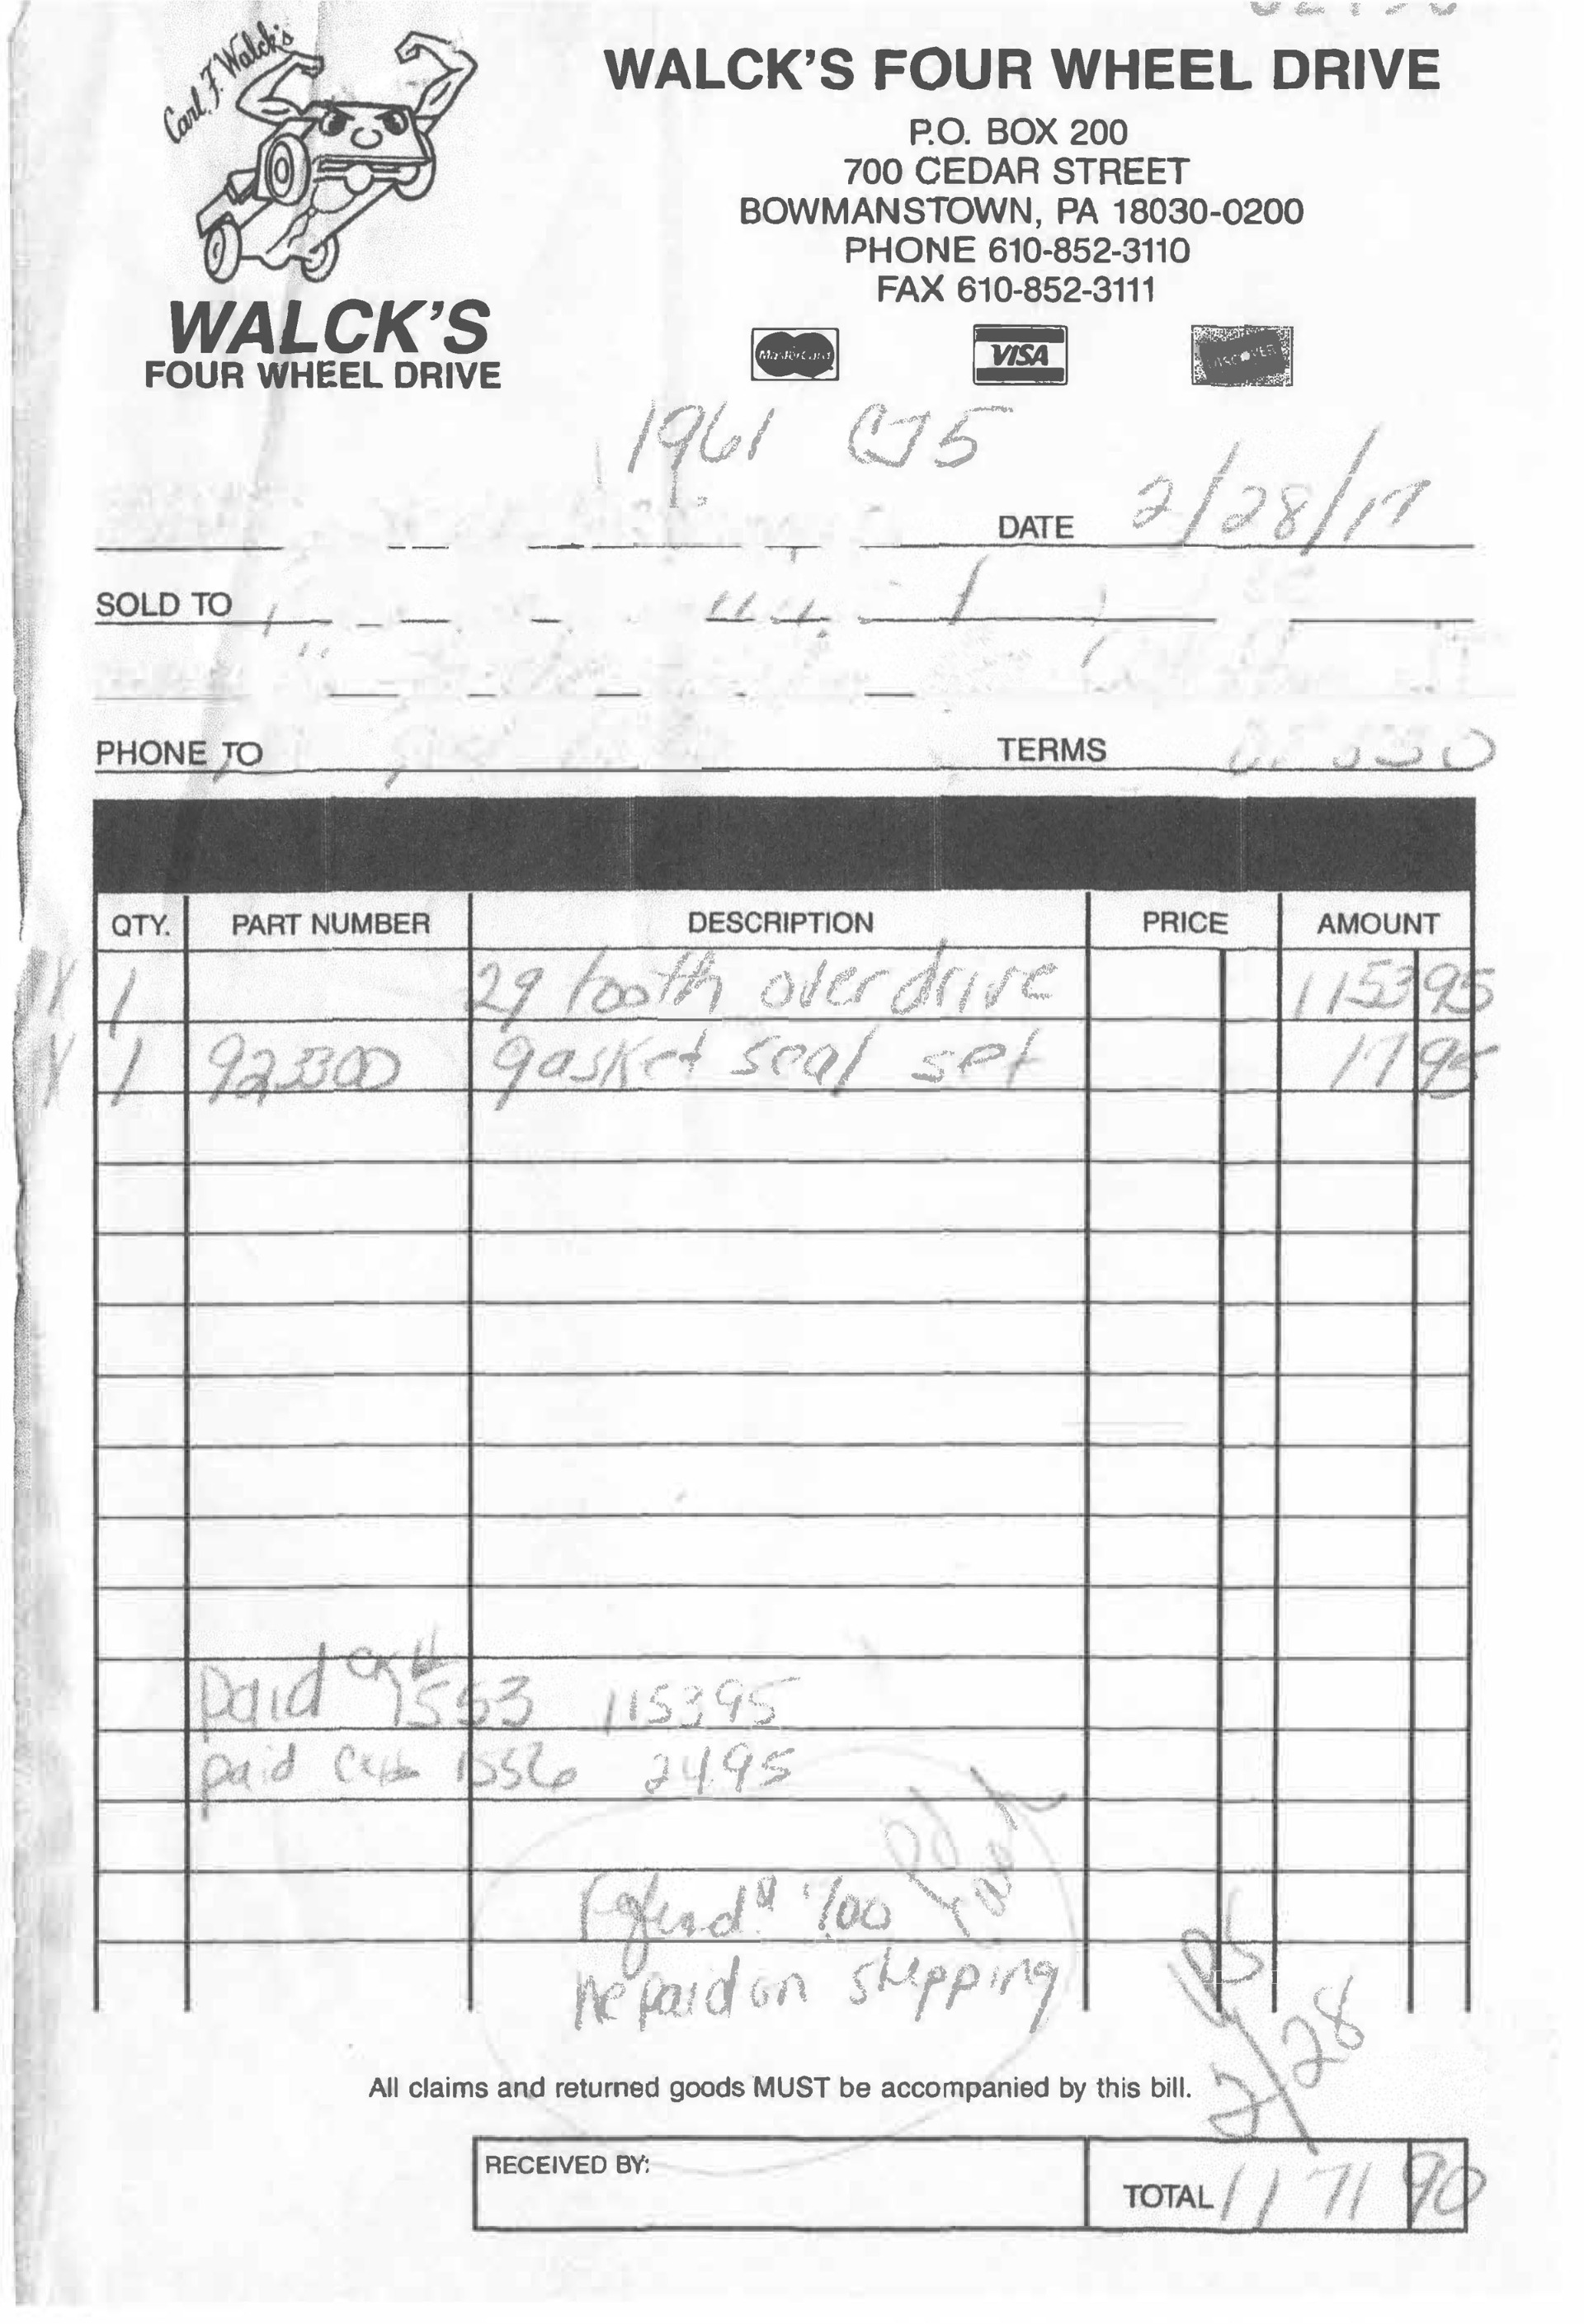 Carl F. Walck's
WALCK'S
FOUR WHEEL DRIVE
WALCK'S FOUR WHEEL DRIVE
P.O. BOX 200
700 CEDAR STREET
BOWMANSTOWN, PA 18030-0200
PHONE 610-852-3110
FAX 610-852-3111
MasterCard VISA DISCOVER
1961 CJ5
DATE 2/28/17
SOLD TO
PHONE TO TERMS
QTY. PART NUMBER DESCRIPTION PRICE AMOUNT
1 29 tooth overdrive 1153 95
1 923300 gasket seal set 17 95
paid ck# 1553 115395
paid ck# 1556 2495
pd cash
7.00
he paid on shipping
UPS
2/28
All claims and returned goods MUST be accompanied by this bill.
RECEIVED BY:
TOTAL 1171 90